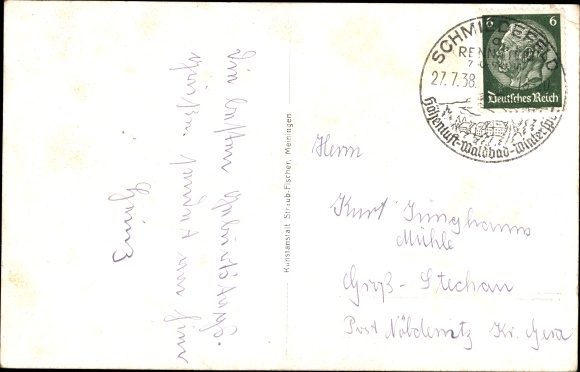 Die besten Geburtstags-
grüßen sendet von hier
Erich
Kunstanstalt Straub-Fischer, Meiningen
SCHMIEDEFELD
RENNSTEIG
27.7.38
Höhenluft-Waldbad-Winter
6 6
Deutsches Reich
Herrn
Kurt Junghanns
Mühle
Groß-Stechau
Post Nöbdenitz Kr. Gera